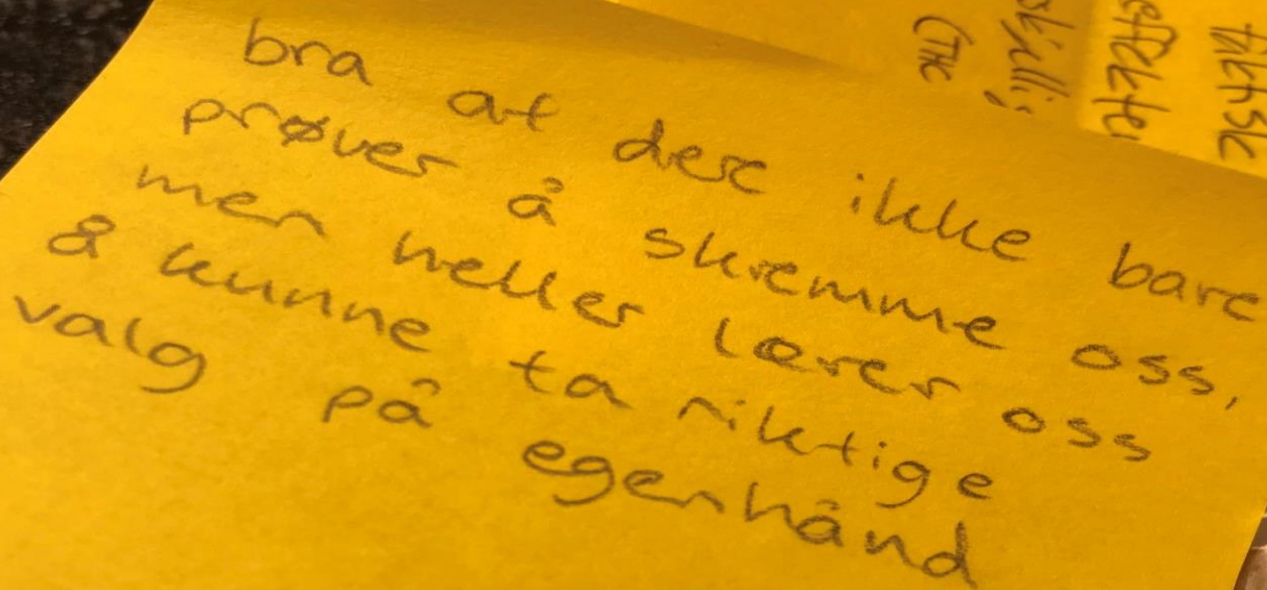 bra at dere ikke bare
prøver å skremme oss,
men heller lærer oss
å kunne ta riktige
valg på egenhånd
(THC